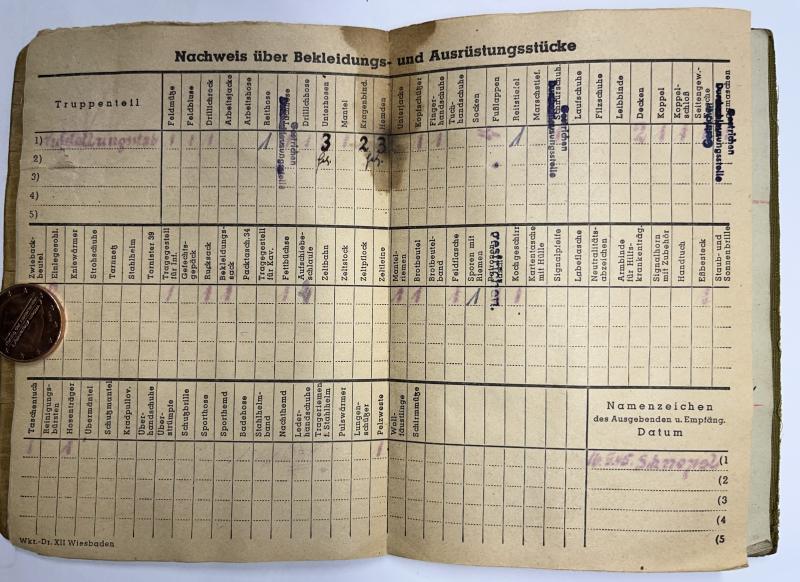 Nachweis über Bekleidungs- und Ausrüstungsstücke
Truppenteil
Feldmütze
Feldbluse
Drillichrock
Arbeitsjacke
Arbeitshose
Reithose
Drillichhose
Unterhosen
Mantel
Kragenbind.
Hemden
Unterjacke
Kopfschützer
Finger-handschuhe
Tuch-handschuhe
Socken
Fußlappen
Reitstiefel
Marschstief.
Schnürschuh.
Laufschuhe
Filzschuhe
Leibbinde
Decken
Koppel
Koppel-schloß
Seitengew.-
1)
1 3 2 3 1 1 1 2 1 1
2)
3)
4)
5)
Zwieback-beutel
Einlegesohl.
Kniewärmer
Strohschuhe
Tarnnetz
Stahlhelm
Tornister 39
Tragegestell für Inf.
Gefechts-gepäck
Rucksack
Bekleidungs-sack
Packtasch.34
Tragegestell für Kav.
Fettbüchse
Aufschiebe-schlaufe
Zeltbahn
Zeltstock
Zeltpflock
Zeltleine
Mantel-riemen
Brotbeutel
Brotbeutel-band
Feldflasche
Sporen mit Riemen
Kochgeschirr
Kartentasche mit Hülle
Signalpfeife
Labeflasche
Neutralitäts-abzeichen
Armbinde für Hilfs-krankenträg.
Signalhorn mit Zubehör
Handtuch
Eßbesteck
Staub- und Sonnenbrille
1 1 1 4 1 1 1 1 1 1
Taschentuch
Reinigungs-bürsten
Hosenträger
Übermäntel
Schutzmantel
Kradpullov.
Über-handschuhe
Über-strümpfe
Schutzbrille
Sporthose
Sporthemd
Badehose
Stahlhelm-band
Nachthemd
Leder-handschuhe
Trageriemen f. Stahlhelm
Pulswärmer
Lungen-schützer
Pelzweste
Woll-fäustlinge
Schirmmütze
Namenzeichen
des Ausgebenden u. Empfäng.
Datum
1 1 1
(1
(2
(3
(4
(5
Wkr.-Dr. XII Wiesbaden